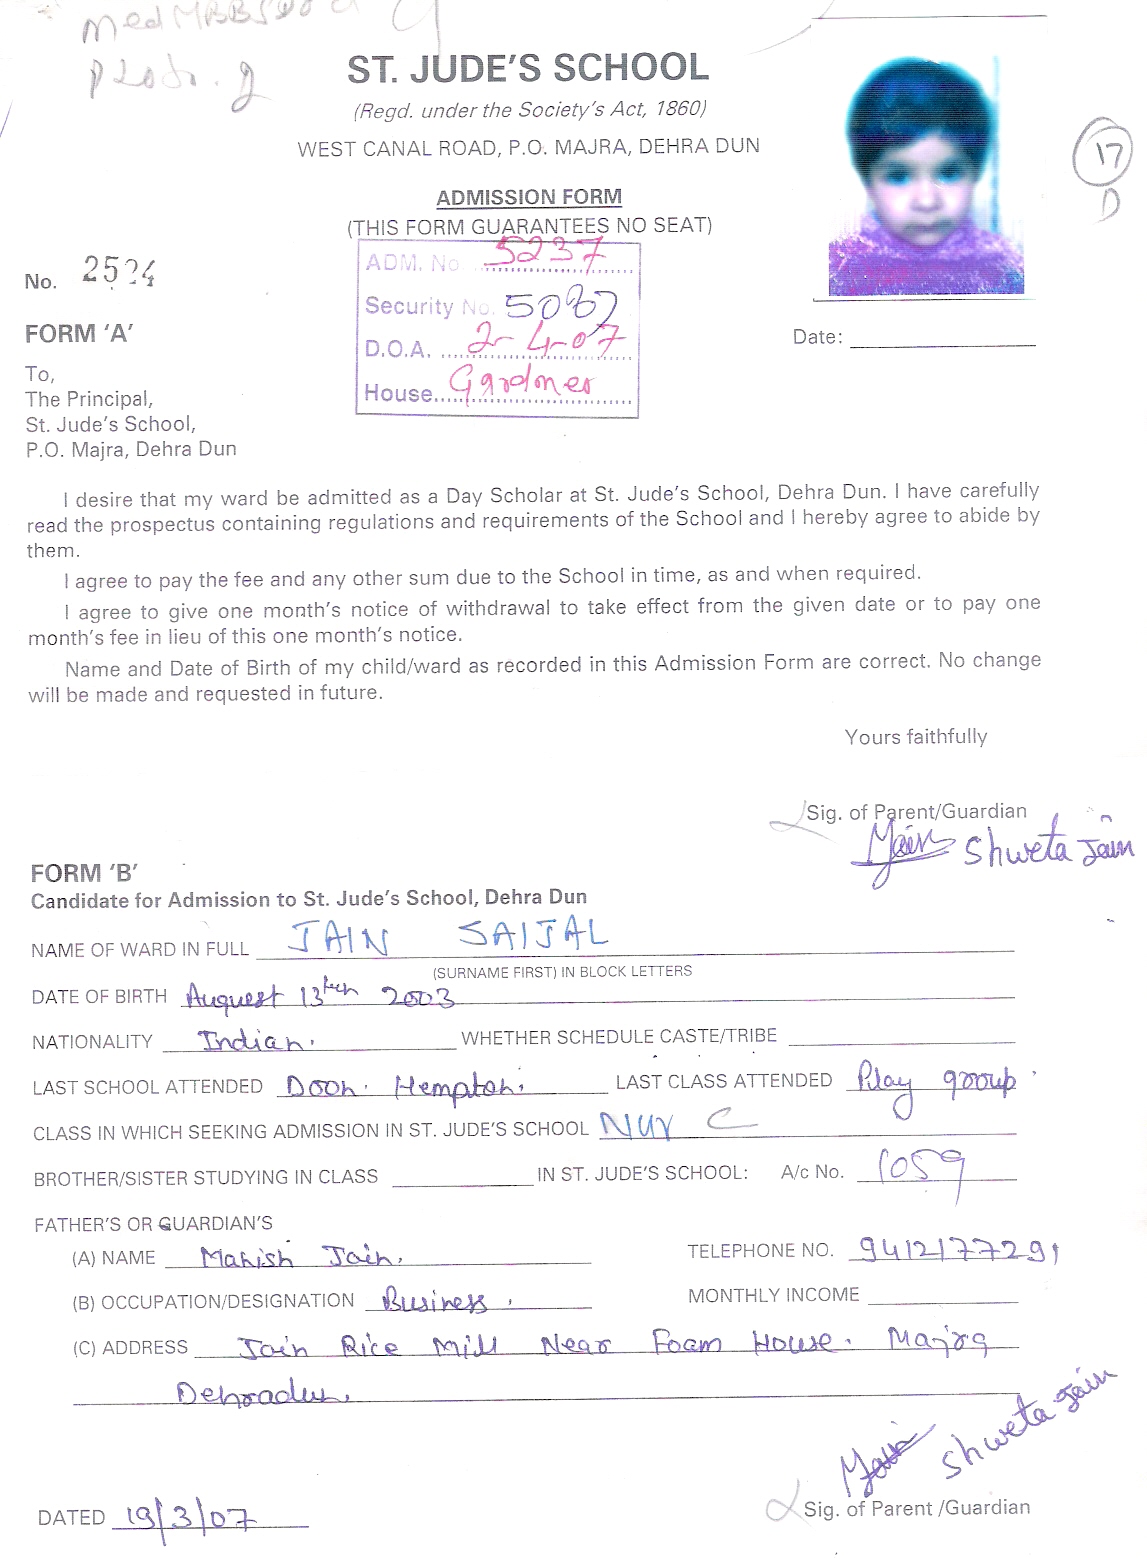 ST. JUDE'S SCHOOL
(Regd. under the Society's Act, 1860)
WEST CANAL ROAD, P.O. MAJRA, DEHRA DUN
17
D
ADMISSION FORM
(THIS FORM GUARANTEES NO SEAT)
No. 2524
ADM. No. 5237
Security No. 5087
D.O.A. 2-4-07
House Gardner
FORM 'A'
Date:
To,
The Principal,
St. Jude's School,
P.O. Majra, Dehra Dun
I desire that my ward be admitted as a Day Scholar at St. Jude's School, Dehra Dun. I have carefully
read the prospectus containing regulations and requirements of the School and I hereby agree to abide by
them.
I agree to pay the fee and any other sum due to the School in time, as and when required.
I agree to give one month's notice of withdrawal to take effect from the given date or to pay one
month's fee in lieu of this one month's notice.
Name and Date of Birth of my child/ward as recorded in this Admission Form are correct. No change
will be made and requested in future.
Yours faithfully
Sig. of Parent/Guardian
Shweta Jain
FORM 'B'
Candidate for Admission to St. Jude's School, Dehra Dun
NAME OF WARD IN FULL JAIN SAIJAL
(SURNAME FIRST) IN BLOCK LETTERS
DATE OF BIRTH August 13th 2003
NATIONALITY Indian. WHETHER SCHEDULE CASTE/TRIBE
LAST SCHOOL ATTENDED Doon. Hempton. LAST CLASS ATTENDED Play group
CLASS IN WHICH SEEKING ADMISSION IN ST. JUDE'S SCHOOL NUR C
BROTHER/SISTER STUDYING IN CLASS IN ST. JUDE'S SCHOOL: A/c No. 1059
FATHER'S OR GUARDIAN'S
(A) NAME Manish Jain. TELEPHONE NO. 9412177291
(B) OCCUPATION/DESIGNATION Business. MONTHLY INCOME
(C) ADDRESS Jain Rice Mill Near Foam House. Majra
Dehradun.
Shweta Jain
DATED 19/3/07
Sig. of Parent /Guardian